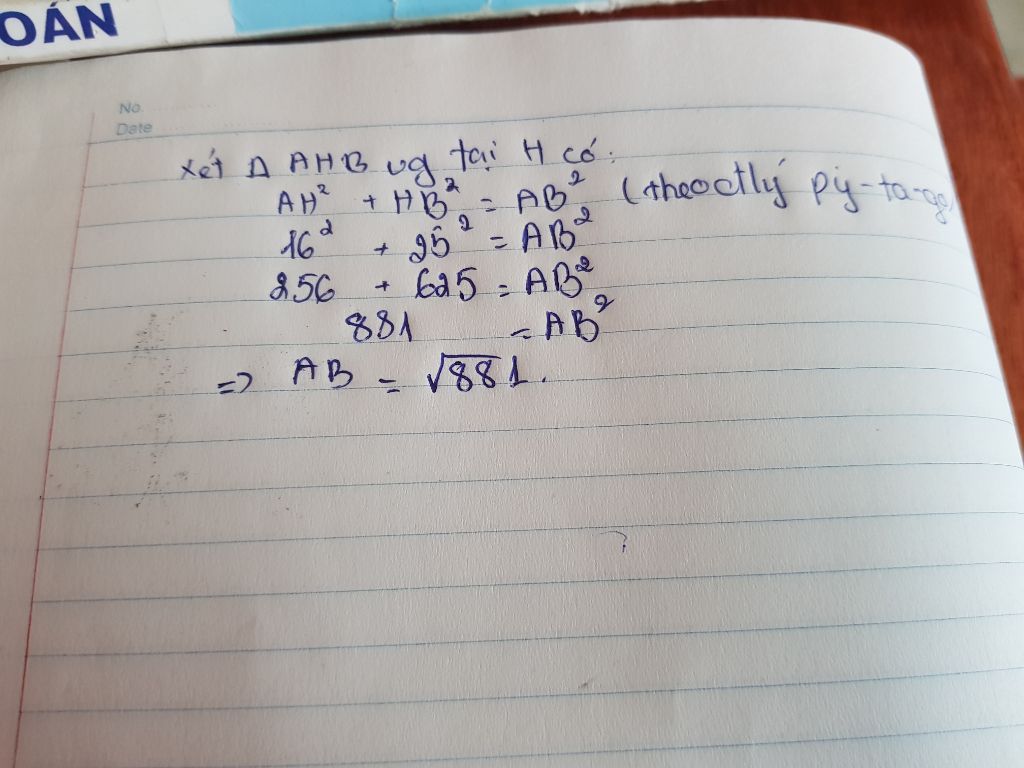 OÁN
No.
Date
Xét Δ AHB vg tại H có:
AH² + HB² = AB² (theo đlý py-ta-go)
16² + 25² = AB²
256 + 625 = AB²
881 = AB²
=> AB = √881.